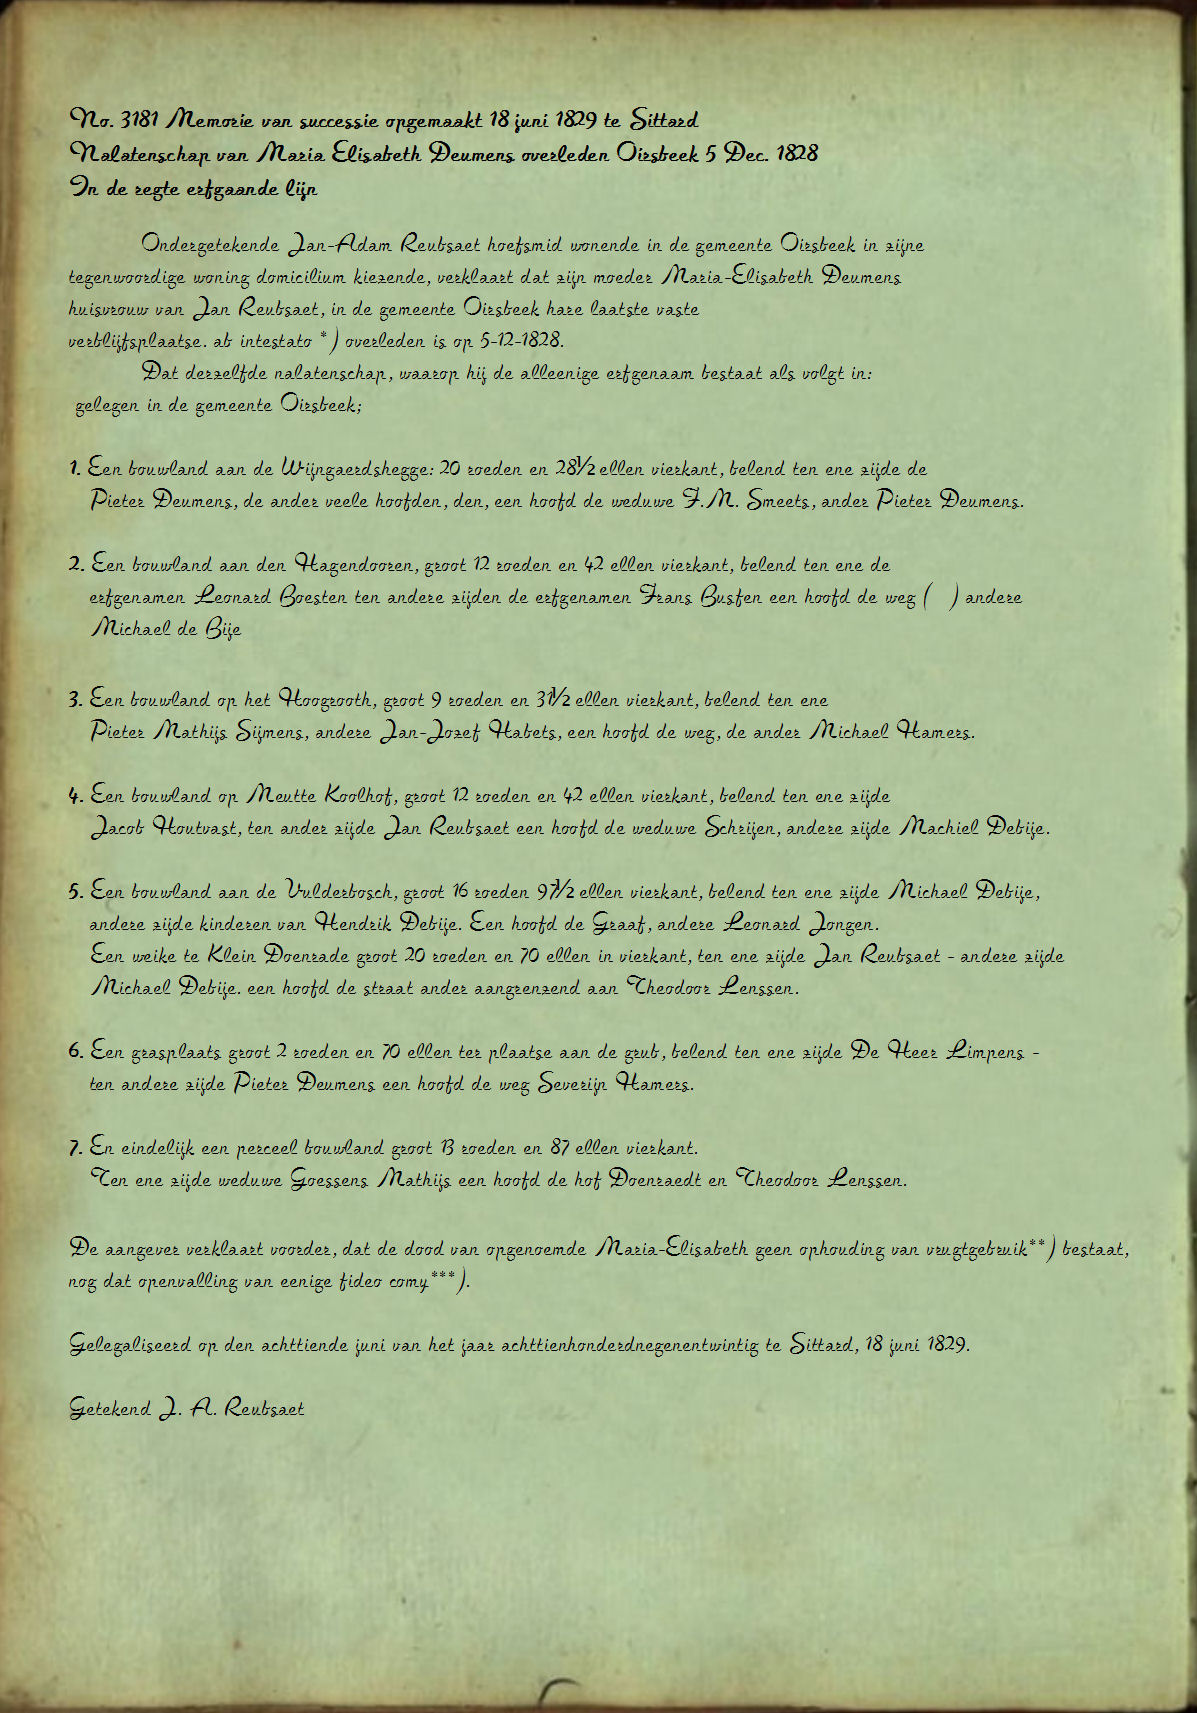 No. 3181 Memorie van successie opgemaakt 18 juni 1829 te Sittard
Nalatenschap van Maria Elisabeth Deumens overleden Oirsbeek 5 Dec. 1828
In de regte erfgaande lijn
Ondergetekende Jan-Adam Reubsaet hoefsmid wonende in de gemeente Oirsbeek in zijne
tegenwoordige woning domicilium kiezende, verklaart dat zijn moeder Maria-Elisabeth Deumens
huisvrouw van Jan Reubsaet, in de gemeente Oirsbeek hare laatste vaste
verblijfsplaatse. ab intestato *) overleden is op 5-12-1828.
Dat derzelfde nalatenschap, waarop hij de alleenige erfgenaam bestaat als volgt in:
gelegen in de gemeente Oirsbeek;
1. Een bouwland aan de Wijngaerdshegge: 20 roeden en 28½ ellen vierkant, belend ten ene zijde de
Pieter Deumens, de ander veele hoofden, den, een hoofd de weduwe F.M. Smeets, ander Pieter Deumens.
2. Een bouwland aan den Hagendooren, groot 12 roeden en 42 ellen vierkant, belend ten ene de
erfgenamen Leonard Boesten ten andere zijden de erfgenamen Frans Busfen een hoofd de weg (   ) andere
Michael de Bije
3. Een bouwland op het Hoogrooth, groot 9 roeden en 31½ ellen vierkant, belend ten ene
Pieter Mathijs Sijmens, andere Jan-Jozef Habets, een hoofd de weg, de ander Michael Hamers.
4. Een bouwland op Meutte Koolhof, groot 12 roeden en 42 ellen vierkant, belend ten ene zijde
Jacob Houtvast, ten ander zijde Jan Reubsaet een hoofd de weduwe Schrijen, andere zijde Machiel Debije.
5. Een bouwland aan de Vulderbosch, groot 16 roeden 97½ ellen vierkant, belend ten ene zijde Michael Debije,
andere zijde kinderen van Hendrik Debije. Een hoofd de Graaf, andere Leonard Jongen.
Een weike te Klein Doenrade groot 20 roeden en 70 ellen in vierkant, ten ene zijde Jan Reubsaet - andere zijde
Michael Debije. een hoofd de straat ander aangrenzend aan Theodoor Lenssen.
6. Een grasplaats groot 2 roeden en 70 ellen ter plaatse aan de grub, belend ten ene zijde De Heer Limpens -
ten andere zijde Pieter Deumens een hoofd de weg Severijn Hamers.
7. En eindelijk een perceel bouwland groot 13 roeden en 87 ellen vierkant.
Ten ene zijde weduwe Goessens Mathijs een hoofd de hof Doenraedt en Theodoor Lenssen.
De aangever verklaart voorder, dat de dood van opgenoemde Maria-Elisabeth geen ophouding van vrugtgebruik**) bestaat,
nog dat openvalling van eenige fideo comy***).
Gelegaliseerd op den achttiende juni van het jaar achttienhonderdnegenentwintig te Sittard, 18 juni 1829.
Getekend J. A. Reubsaet